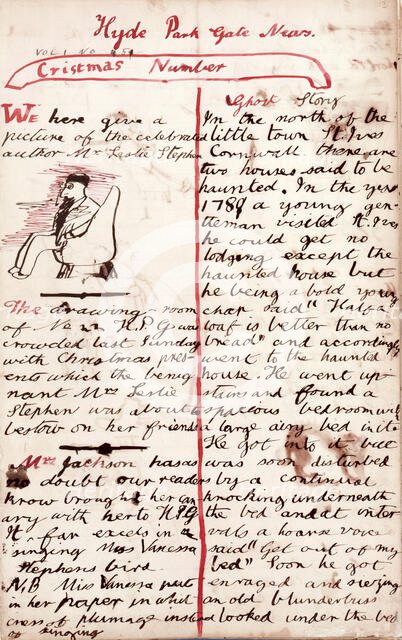 Hyde Park Gate News.
VOL. 1 NO. 51
Cristmas Number
We here give a
picture of the celebrated
author Mr Leslie Stephen
The drawing-room
of No 22 H.P.G was
crowded last Sunday
with Christmas pres-
ents which the benig
nant Mrs Leslie
Stephen was about to
bestow on her friends
Mrs Jackson has as
no doubt our readers
know brought her can
ary with her to H.P.G
It far excels in
singing Miss Vanessa
Stephens bird.
N.B Miss Vanessa puts
in her paper in whit
cress of plumage instead
of singing
Ghost Story
In the north of the
little town St. Ives
Cornwall there are
two houses said to be
haunted. In the year
1789 a young gen-
tleman visited St. Ives
he could get no
lodging except the
haunted house but
he being a bold young
chap said "Half a
loaf is better than no
bread" and accordingly
went to the haunted
house. He went up
stairs and found a
spacious bedroom with
a large airy bed in it.
He got into it but
was soon disturbed
by a continual
knocking underneath
the bed and at inter
vals a hoarse voice
said "Get out of my
bed" Soon he got
enraged and seizing
an old blunderbuss
looked under the bed